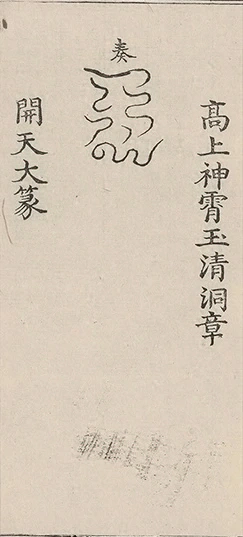 高上神霄玉清洞章
奏
開天大篆